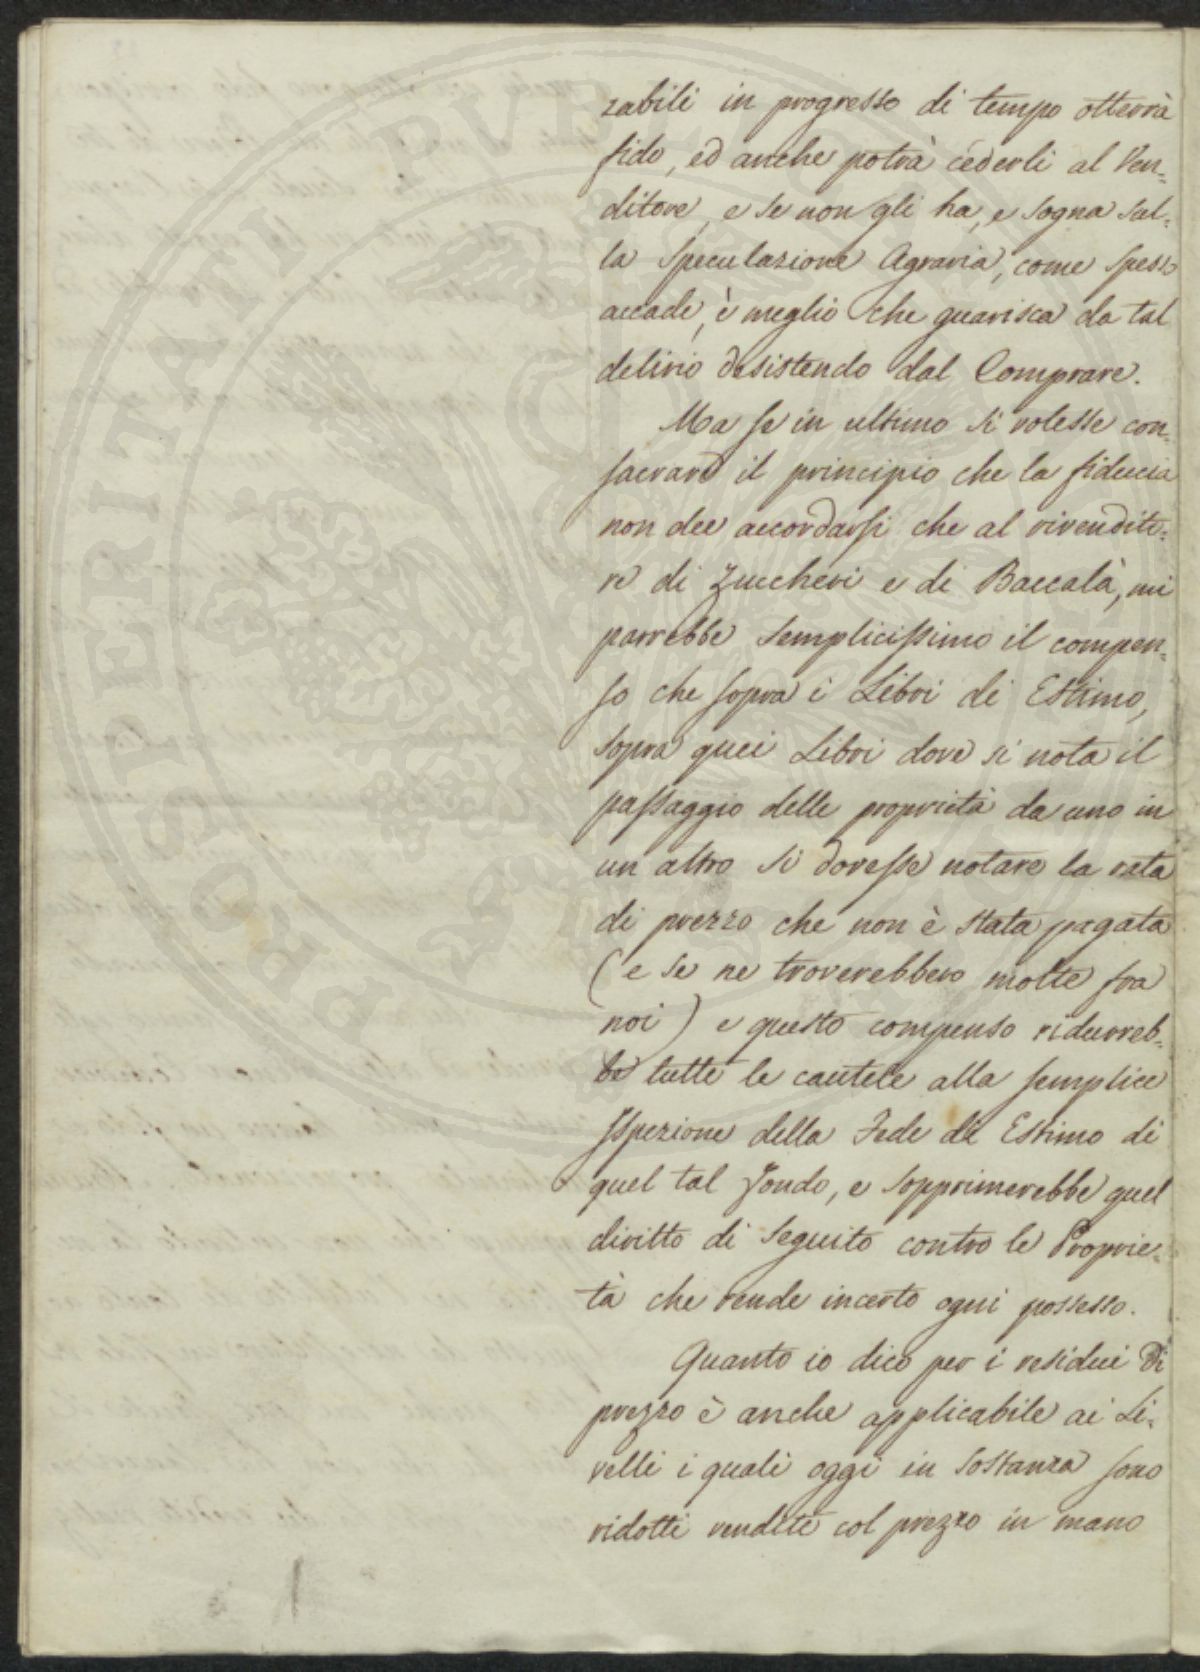 zabili in progresso di tempo otterrà
fido, ed anche potrà cederli al Ven-
ditore, e se non gli ha, e sogna sul-
la Speculazione Agraria, come spesso
accade, è meglio che guarisca da tal
delirio desistendo dal Comprare.
Ma se in ultimo si volesse con-
sacrare il principio che la fiducia
non dee accordarsi che al rivendito-
re di Zuccheri e di Baccalà, mi
parrebbe semplicissimo il compen-
so che sopra i Libri di Estimo,
sopra quei Libri dove si nota il
passaggio delle proprietà da uno in
un altro si dovesse notare la rata
di prezzo che non è stata pagata
(e se ne troverebbero molte fra
noi) e questo compenso ridurreb-
be tutte le cautele alla semplice
Ispezione della Fede di Estimo di
quel tal Fondo, e sopprimerebbe quel
diritto di seguito contro le Proprie-
tà che rende incerto ogni possesso.
Quanto io dico per i residui di
prezzo è anche applicabile ai Li-
velli i quali oggi in sostanza sono
ridotti vendite col prezzo in mano
PROSPERITATI PUBLICAE